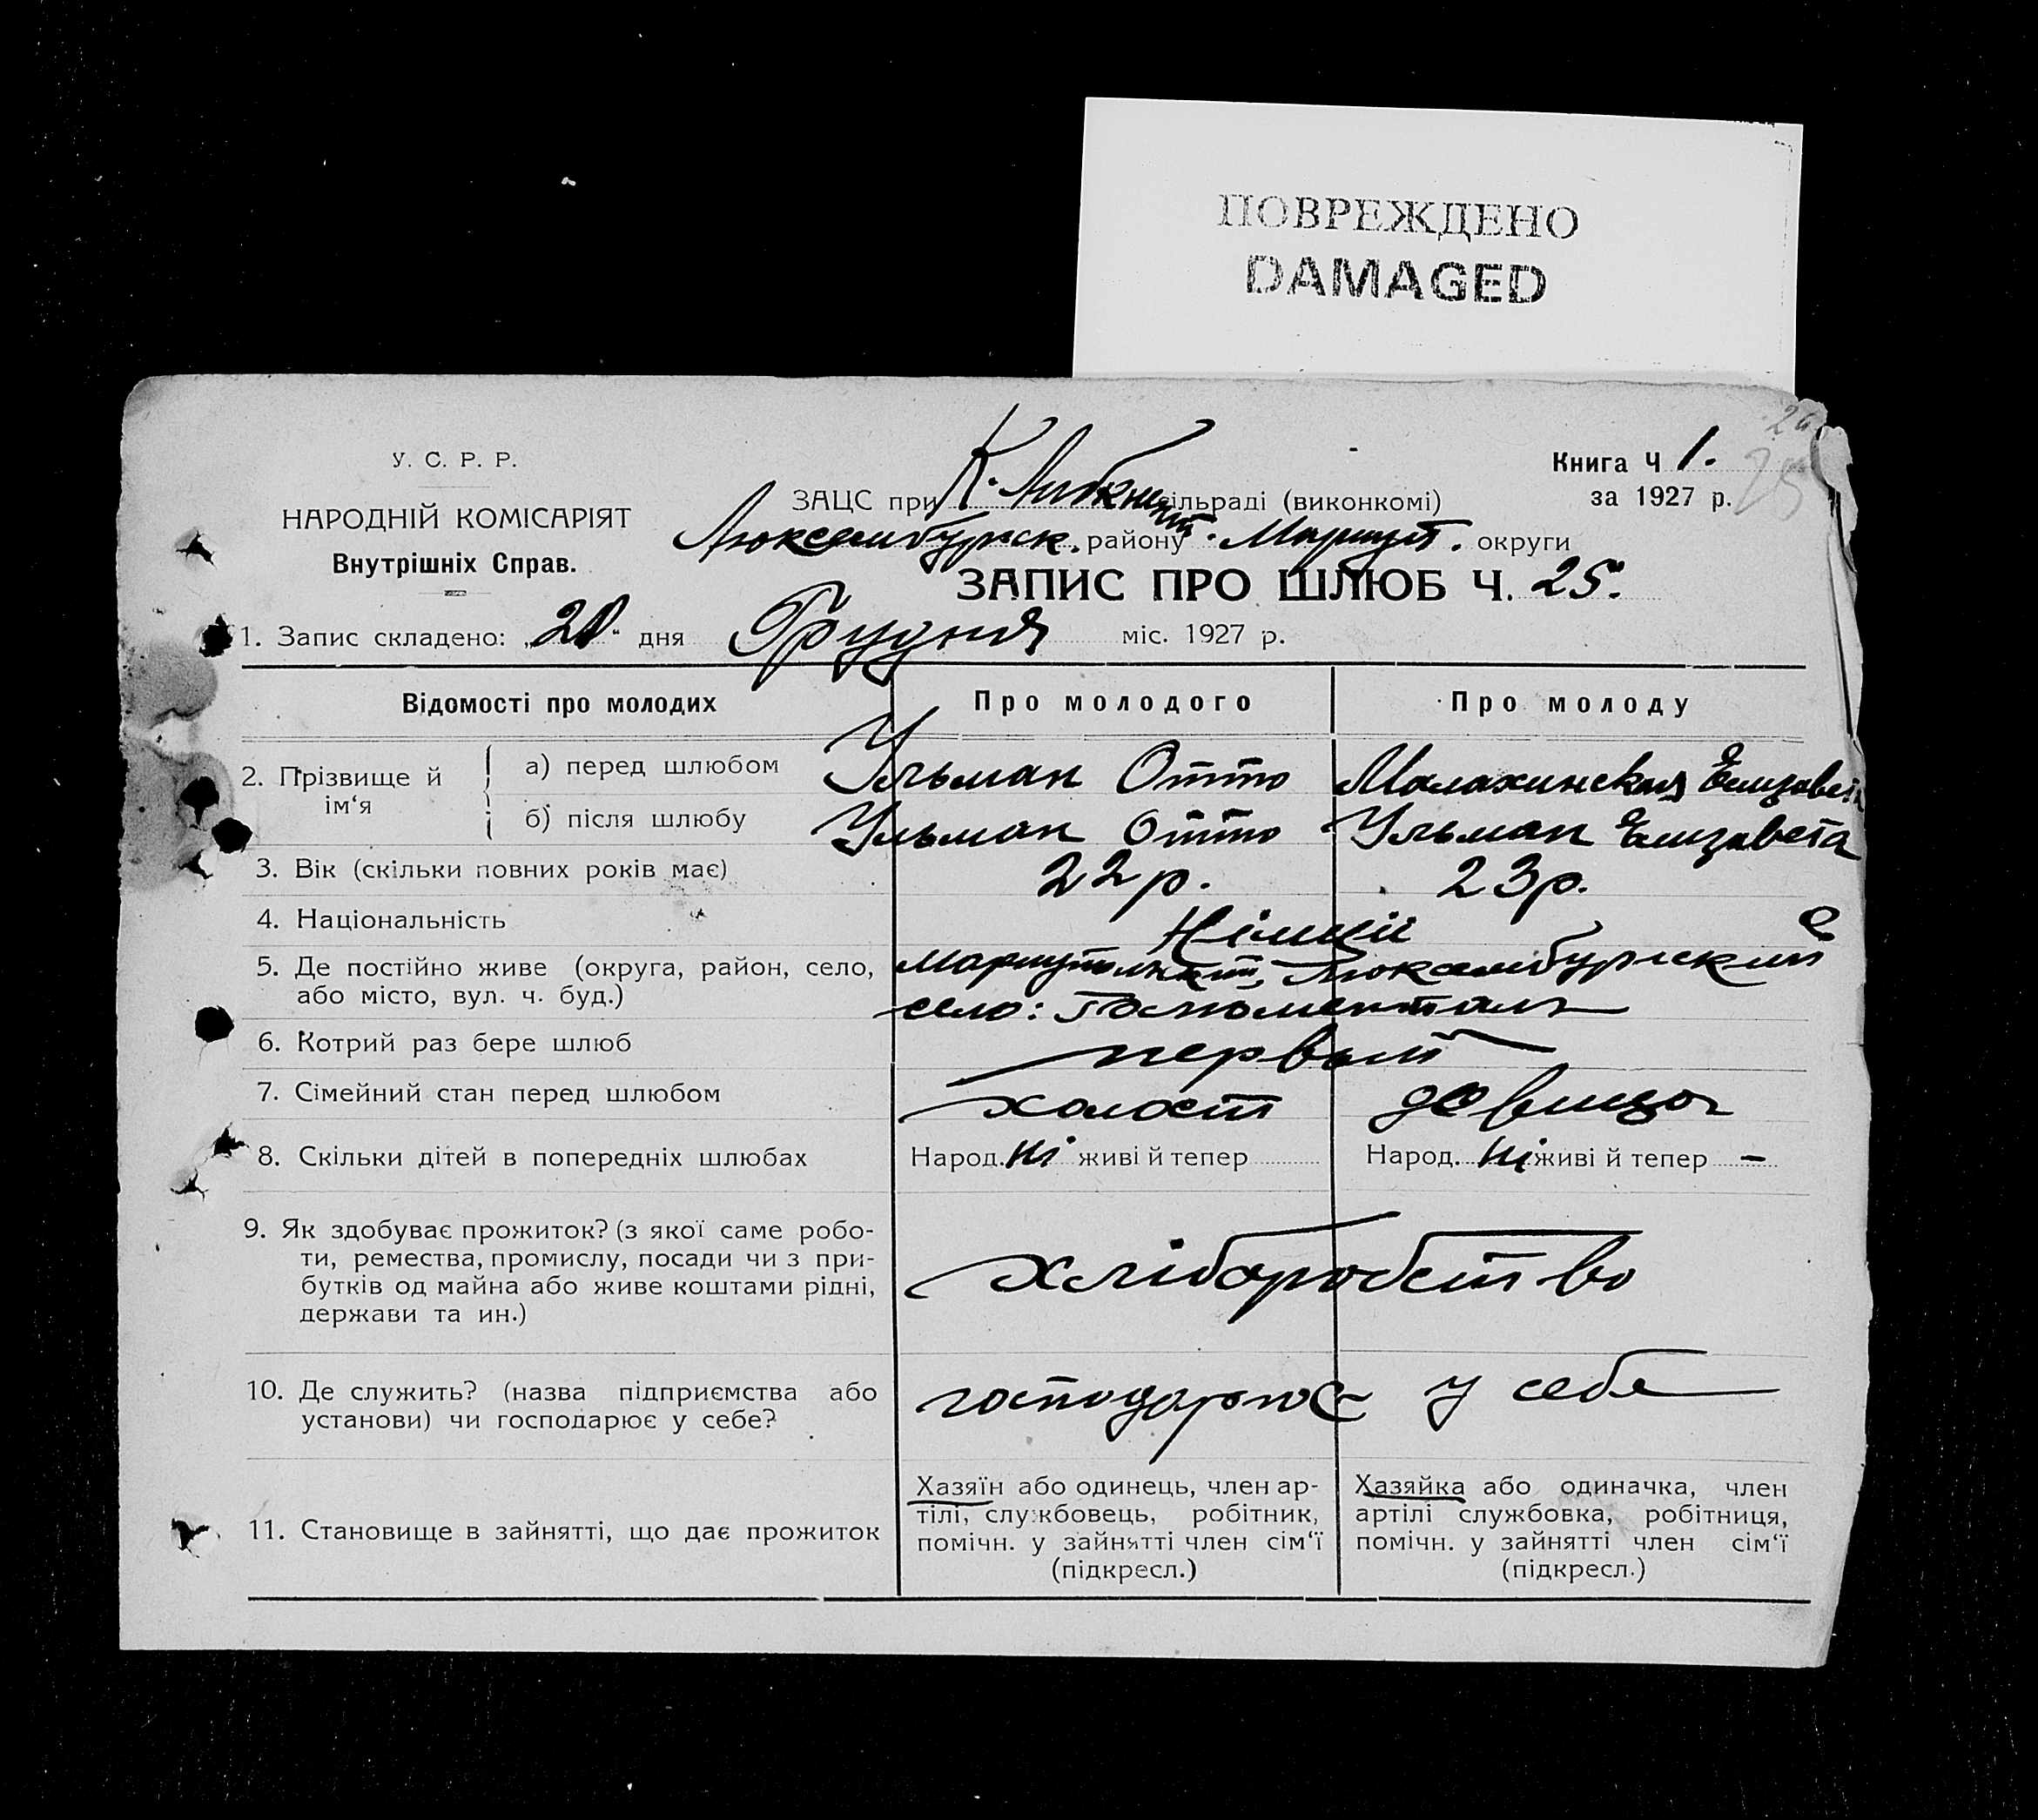 ПОВРЕЖДЕНО
DAMAGED
26
25
У. С. Р. Р.
НАРОДНІЙ КОМІСАРІЯТ
Внутрішніх Справ.
Книга Ч 1.
за 1927 р.
ЗАЦС при К. Либкнехт. сільраді (виконкомі)
Люксембургск. району Мариуп. округи
ЗАПИС ПРО ШЛЮБ Ч. 25.
1. Запис складено: „20“ дня Грудня міс. 1927 р.
Відомості про молодих Про молодого Про молоду
2. Прізвище й ім‘я
а) перед шлюбом Ульман Отто Малахинская Елизавета
б) після шлюбу Ульман Отто Ульман Елизавета
3. Вік (скільки повних років має) 22 р. 23 р.
4. Національність Німцій
5. Де постійно живе (округа, район, село, або місто, вул. ч. буд.)
Люксембургский
село:
6. Котрий раз бере шлюб первый
7. Сімейний стан перед шлюбом холост девица
8. Скільки дітей в попередніх шлюбах Народ. ні живі й тепер Народ. ні живі й тепер –
9. Як здобуває прожиток? (з якої саме робо-
ти, ремества, промислу, посади чи з при-
бутків од майна або живе коштами рідні,
держави та ин.)
хліборобство
10. Де служить? (назва підприємства або
установи) чи господарює у себе?
господарює у себе
11. Становище в зайнятті, що дає прожиток
Хазяїн або одинець, член ар-
тілі, службовець, робітник,
помічн. у зайнятті член сім‘ї
(підкресл.)
Хазяйка або одиначка, член
артілі службовка, робітниця,
помічн. у зайнятті член сім‘ї
(підкресл.)